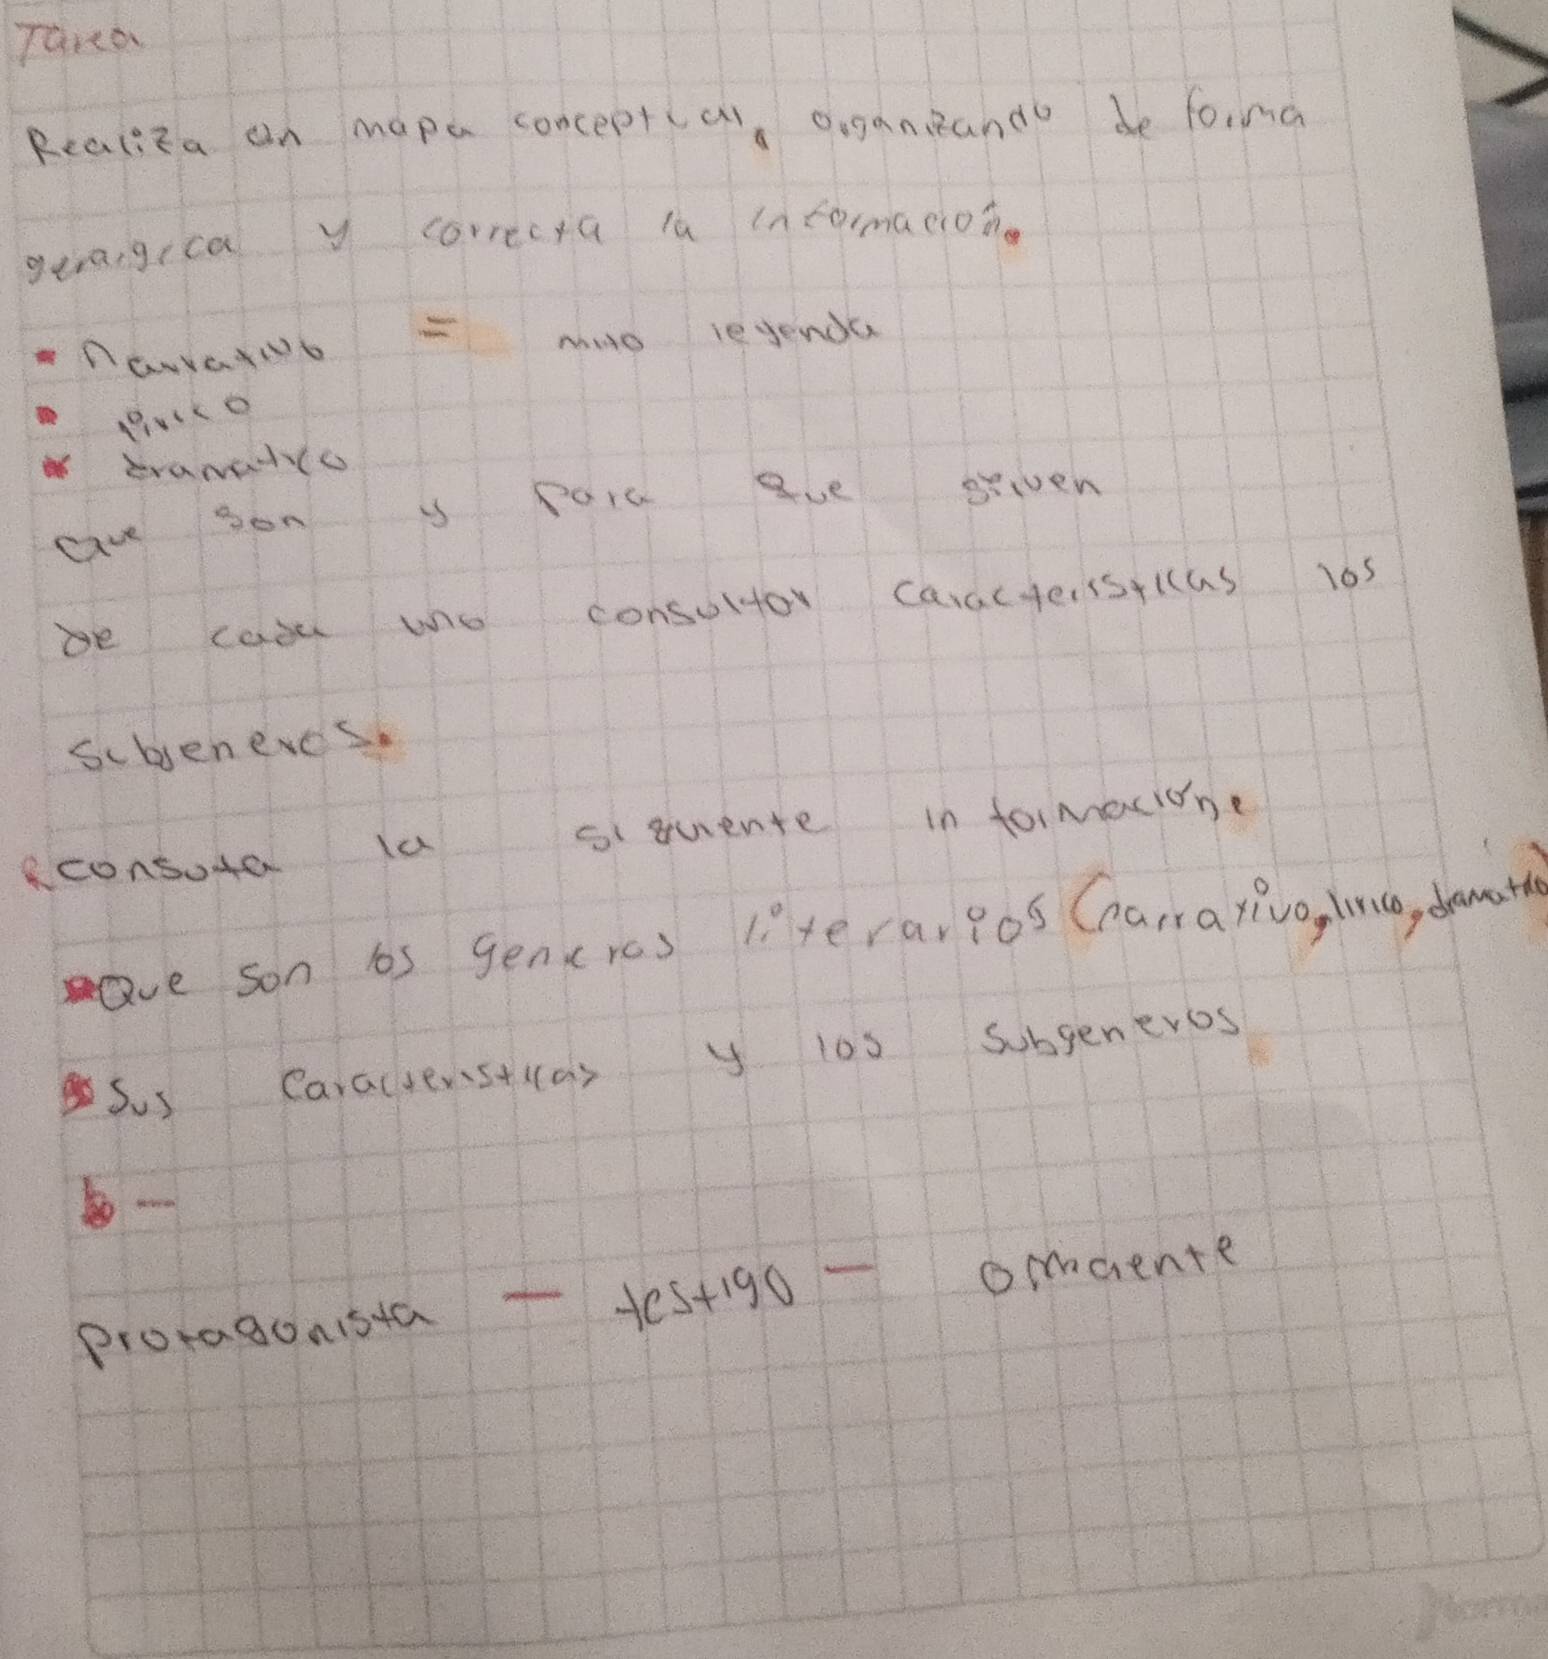 Tarea
Realiza un mapa conceptual, organizando de forma
gerargica y correcta la información.
• narrativo = mito leyenda
• lirico
• dramatico
Que son y para que sriven
de cada uno consultar caracterissticas los
subgeneros.
consuta la siguiente información.
• Que son los generos literarios (narrativo, lirico, dramatico)
• Sus caracteristicas y los subgeneros
b -
protagonista - testigo -